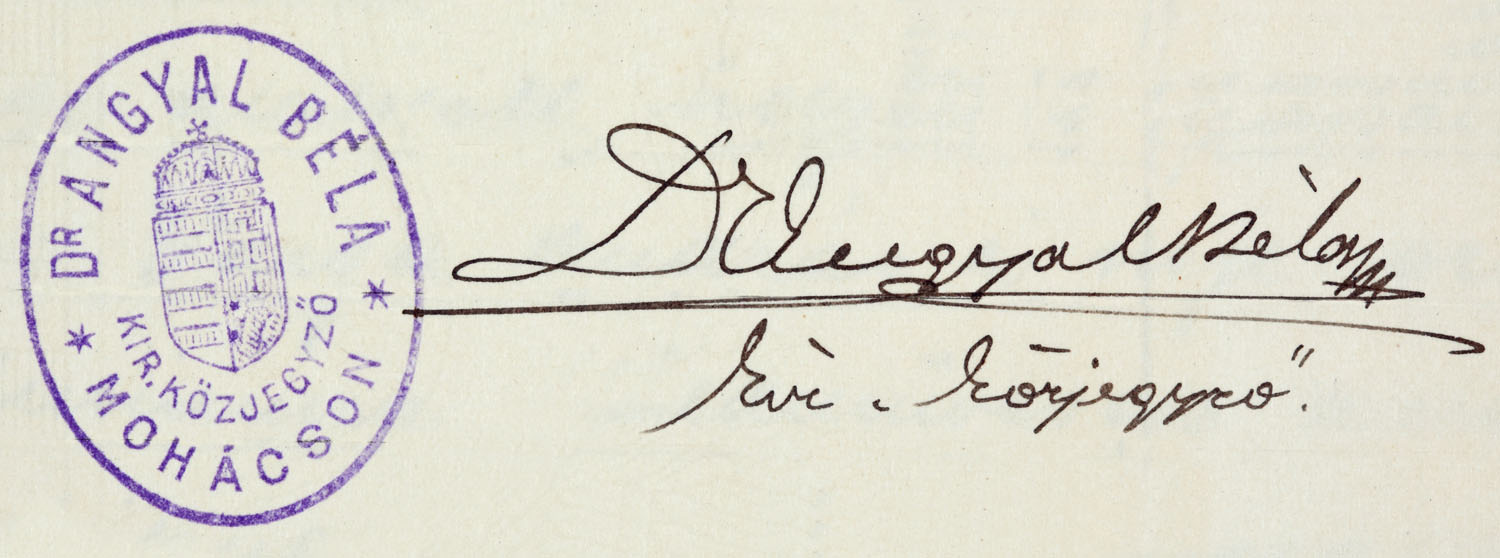 DR ANGYAL BÉLA
KIR. KÖZJEGYZŐ
MOHÁCSON
Dr Angyal Béla
kir. közjegyző.